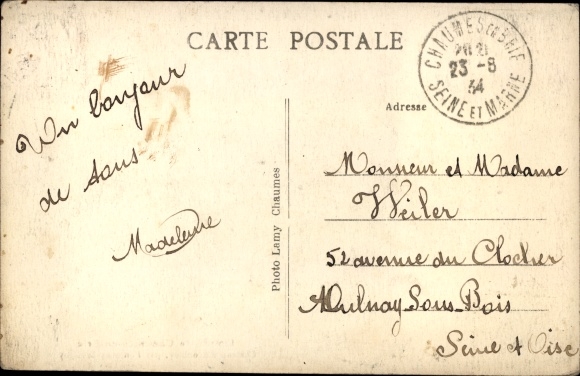 CARTE POSTALE
CHAUMES EN BRIE
23 -8
34
SEINE ET MARNE
Adresse
Un bonjour
de tous
Madeleine
Photo Lamy Chaumes
Monsieur et Madame
Weiler
52 avenue du Clocher
Aulnay-Sous-Bois
Seine et Oise